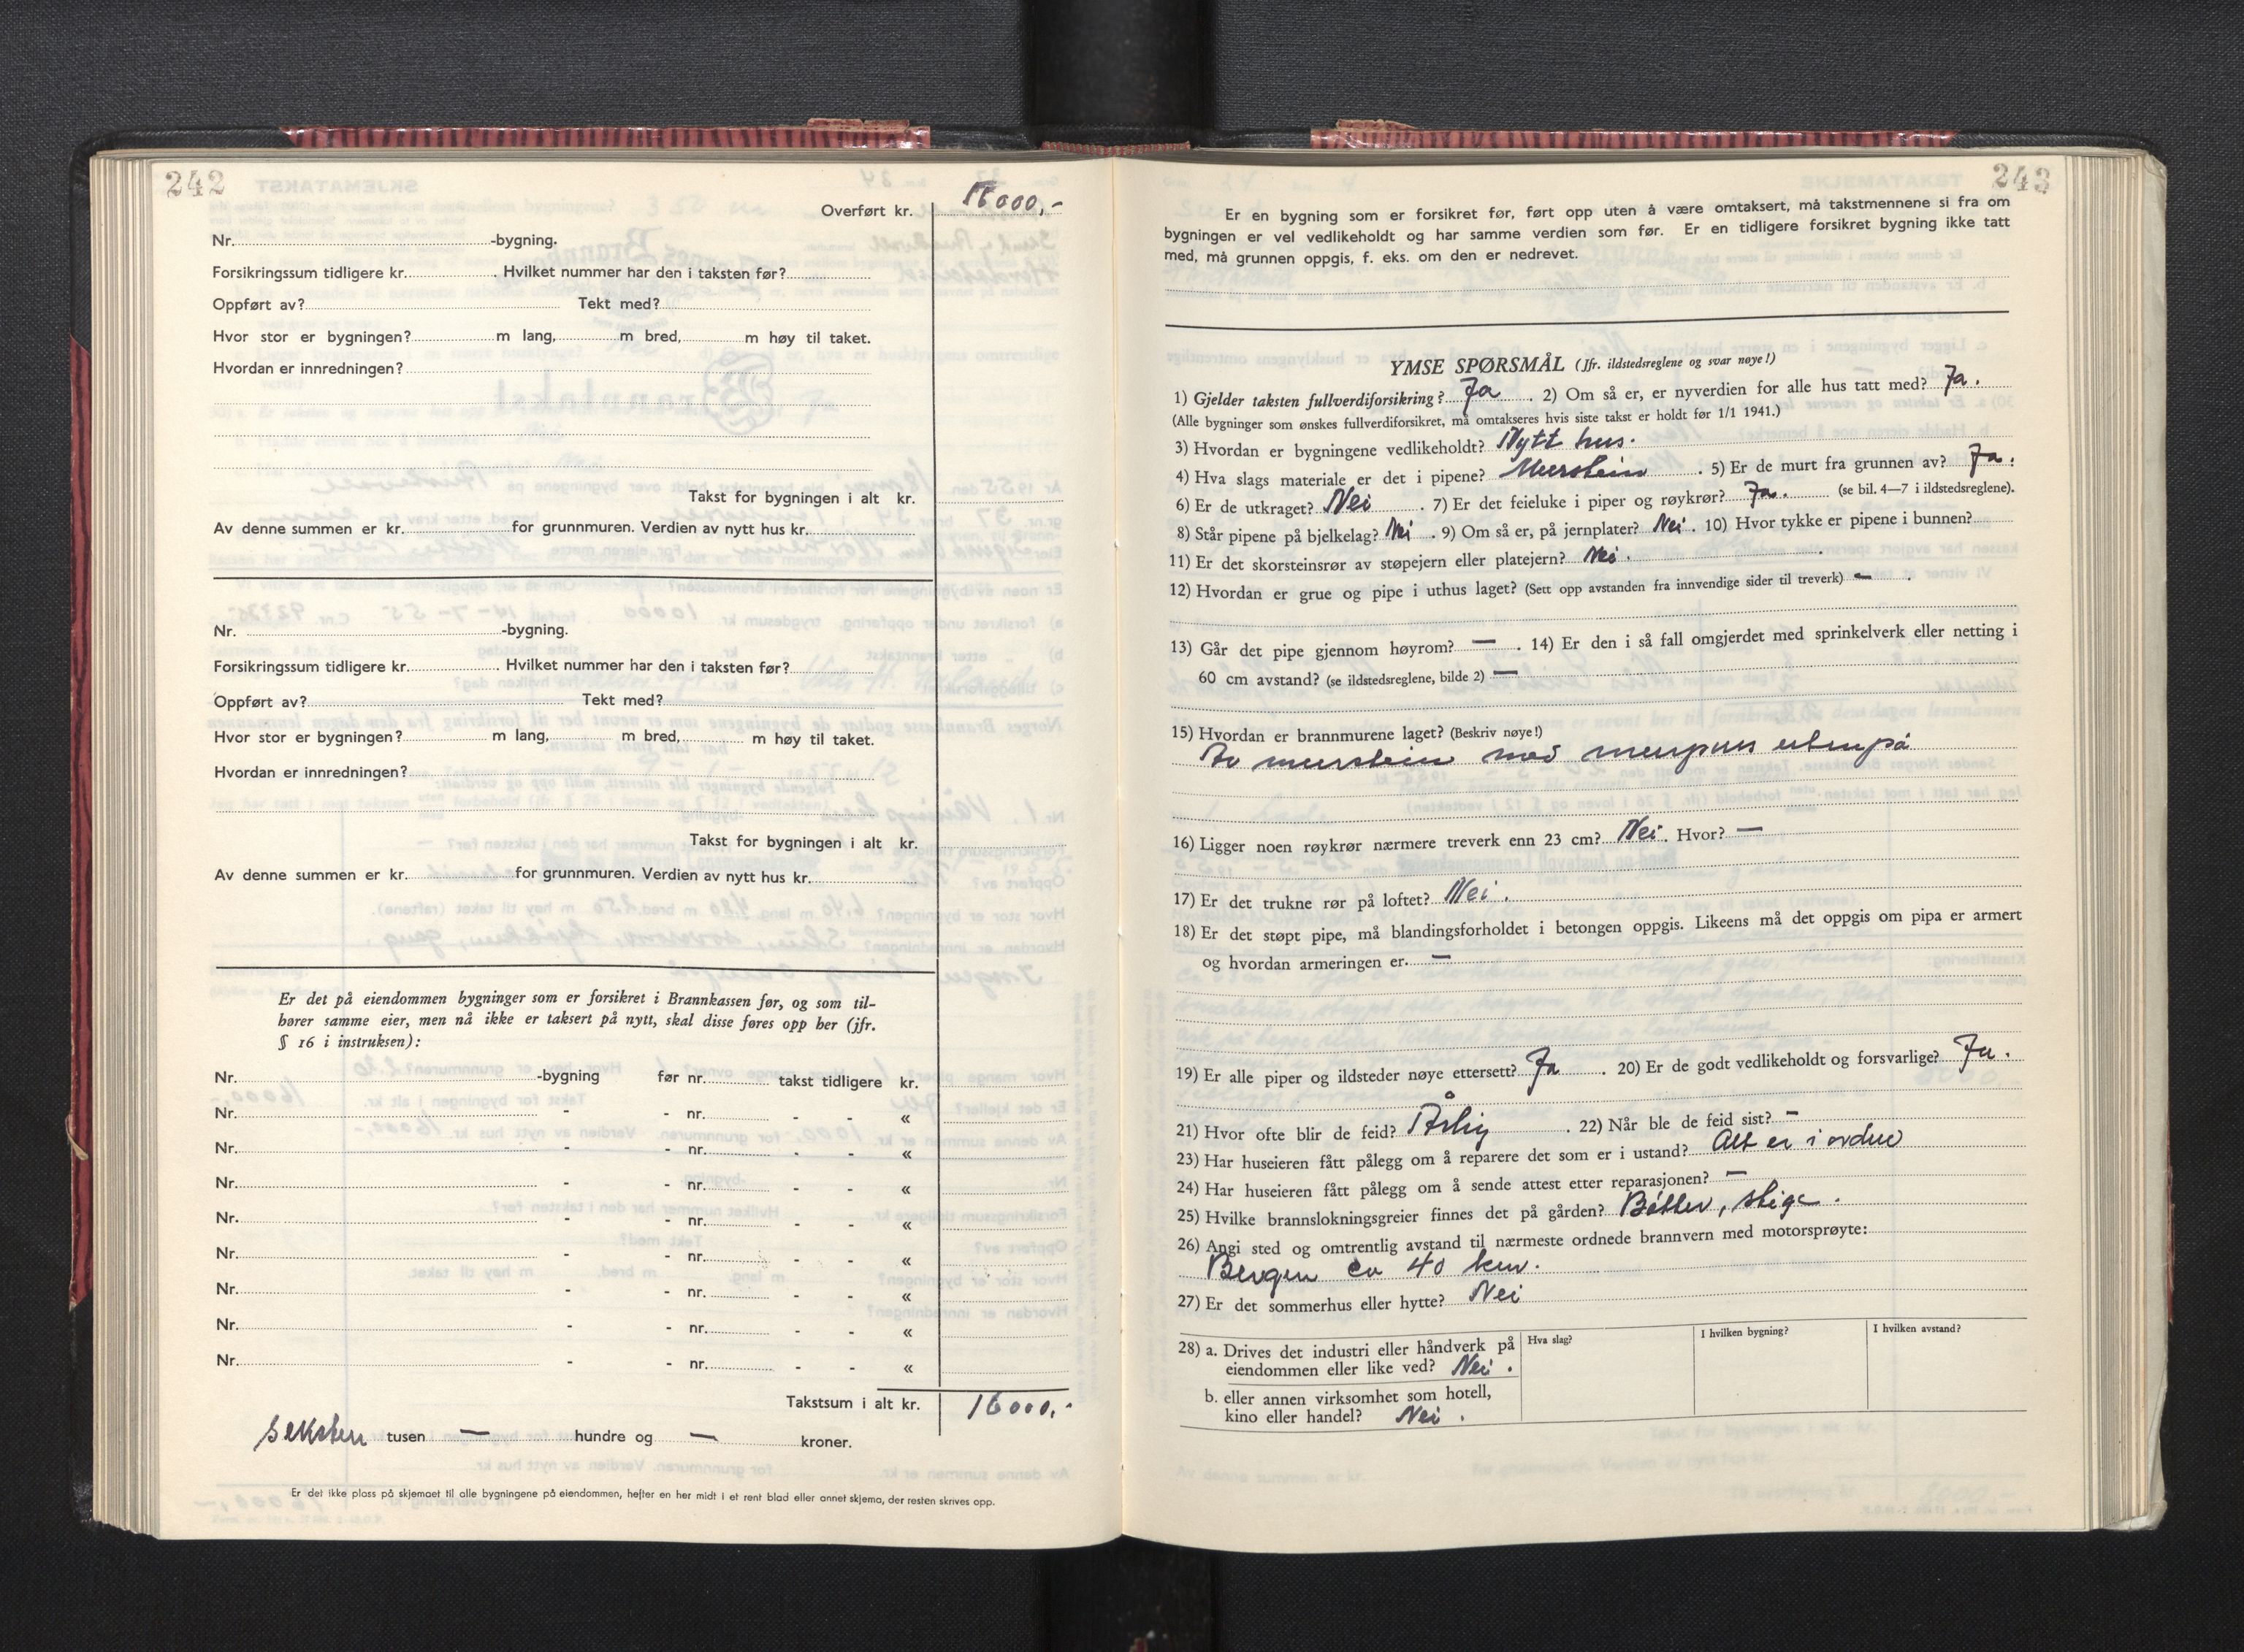 242
Overført kr. 16000,-
Nr. -bygning.
Forsikringssum tidligere kr. . Hvilket nummer har den i taksten før?
Oppført av? Tekt med?
Hvor stor er bygningen? m lang, m bred, m høy til taket.
Hvordan er innredningen?
Takst for bygningen i alt kr.
Av denne summen er kr. for grunnmuren. Verdien av nytt hus kr.
Nr. -bygning.
Forsikringssum tidligere kr. . Hvilket nummer har den i taksten før?
Oppført av? Tekt med?
Hvor stor er bygningen? m lang, m bred, m høy til taket.
Hvordan er innredningen?
Takst for bygningen i alt kr.
Av denne summen er kr. for grunnmuren. Verdien av nytt hus kr.
Er det på eiendommen bygninger som er forsikret i Brannkassen før, og som til-
hører samme eier, men nå ikke er taksert på nytt, skal disse føres opp her (jfr.
§ 16 i instruksen):
Nr. -bygning før nr. takst tidligere kr.
Nr. - - nr. - - «
Nr. - - nr. - - «
Nr. - - nr. - - «
Nr. - - nr. - - «
Nr. - - nr. - - «
Nr. - - nr. - - «
Nr. - - nr. - - «
Nr. - - nr. - - «
Takstsum i alt kr. 16000,-
seksten tusen — hundre og — kroner.
Er det ikke plass på skjemaet til alle bygningene på eiendommen, hefter en her midt i et rent blad eller annet skjema, der resten skrives opp.
243
Er en bygning som er forsikret før, ført opp uten å være omtaksert, må takstmennene si fra om
bygningen er vel vedlikeholdt og har samme verdien som før. Er en tidligere forsikret bygning ikke tatt
med, må grunnen oppgis, f. eks. om den er nedrevet.
YMSE SPØRSMÅL (Jfr. ildstedsreglene og svar nøye!)
1) Gjelder taksten fullverdiforsikring? Ja . 2) Om så er, er nyverdien for alle hus tatt med? Ja.
(Alle bygninger som ønskes fullverdiforsikret, må omtakseres hvis siste takst er holdt før 1/1 1941.)
3) Hvordan er bygningene vedlikeholdt? Nytt hus.
4) Hva slags materiale er det i pipene? Murstein . 5) Er de murt fra grunnen av? Ja.
6) Er de utkraget? Nei . 7) Er det feieluke i piper og røykrør? Ja. (se bil. 4—7 i ildstedsreglene).
8) Står pipene på bjelkelag? Nei . 9) Om så er, på jernplater? Nei . 10) Hvor tykke er pipene i bunnen?
11) Er det skorsteinsrør av støpejern eller platejern? Nei .
12) Hvordan er grue og pipe i uthus laget? (Sett opp avstanden fra innvendige sider til treverk) — .
13) Går det pipe gjennom høyrom? — . 14) Er den i så fall omgjerdet med sprinkelverk eller netting i
60 cm avstand? (se ildstedsreglene, bilde 2) —
15) Hvordan er brannmurene laget? (Beskriv nøye!)
Av murstein med murpuss utenpå
16) Ligger noen røykrør nærmere treverk enn 23 cm? Nei. Hvor? —
17) Er det trukne rør på loftet? Nei .
18) Er det støpt pipe, må blandingsforholdet i betongen oppgis. Likeens må det oppgis om pipa er armert
og hvordan armeringen er. —
19) Er alle piper og ildsteder nøye ettersett? Ja . 20) Er de godt vedlikeholdt og forsvarlige? Ja .
21) Hvor ofte blir de feid? Årlig . 22) Når ble de feid sist? —
23) Har huseieren fått pålegg om å reparere det som er i ustand? Alt er i orden
24) Har huseieren fått pålegg om å sende attest etter reparasjonen? —
25) Hvilke brannslokningsgreier finnes det på gården? Bøtter, stige .
26) Angi sted og omtrentlig avstand til nærmeste ordnede brannvern med motorsprøyte:
Bergen ca 40 km.
27) Er det sommerhus eller hytte? Nei
28) a. Drives det industri eller håndverk på
eiendommen eller like ved? Nei .
Hva slag?
I hvilken bygning?
I hvilken avstand?
b. eller annen virksomhet som hotell,
kino eller handel? Nei .